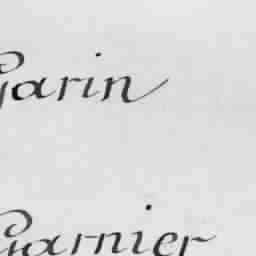 Garin
Garnier